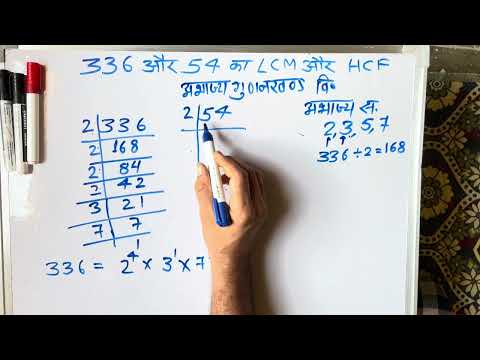 336 और 54 का LCM और HCF
अभाज्य गुणनखण्ड वि०
2 336
2 168
2 84
2 42
3 21
7 7
1
336 = 2^4 × 3^1 × 7
2 54
अभाज्य सं.
2, 3, 5, 7
336 ÷ 2 = 168